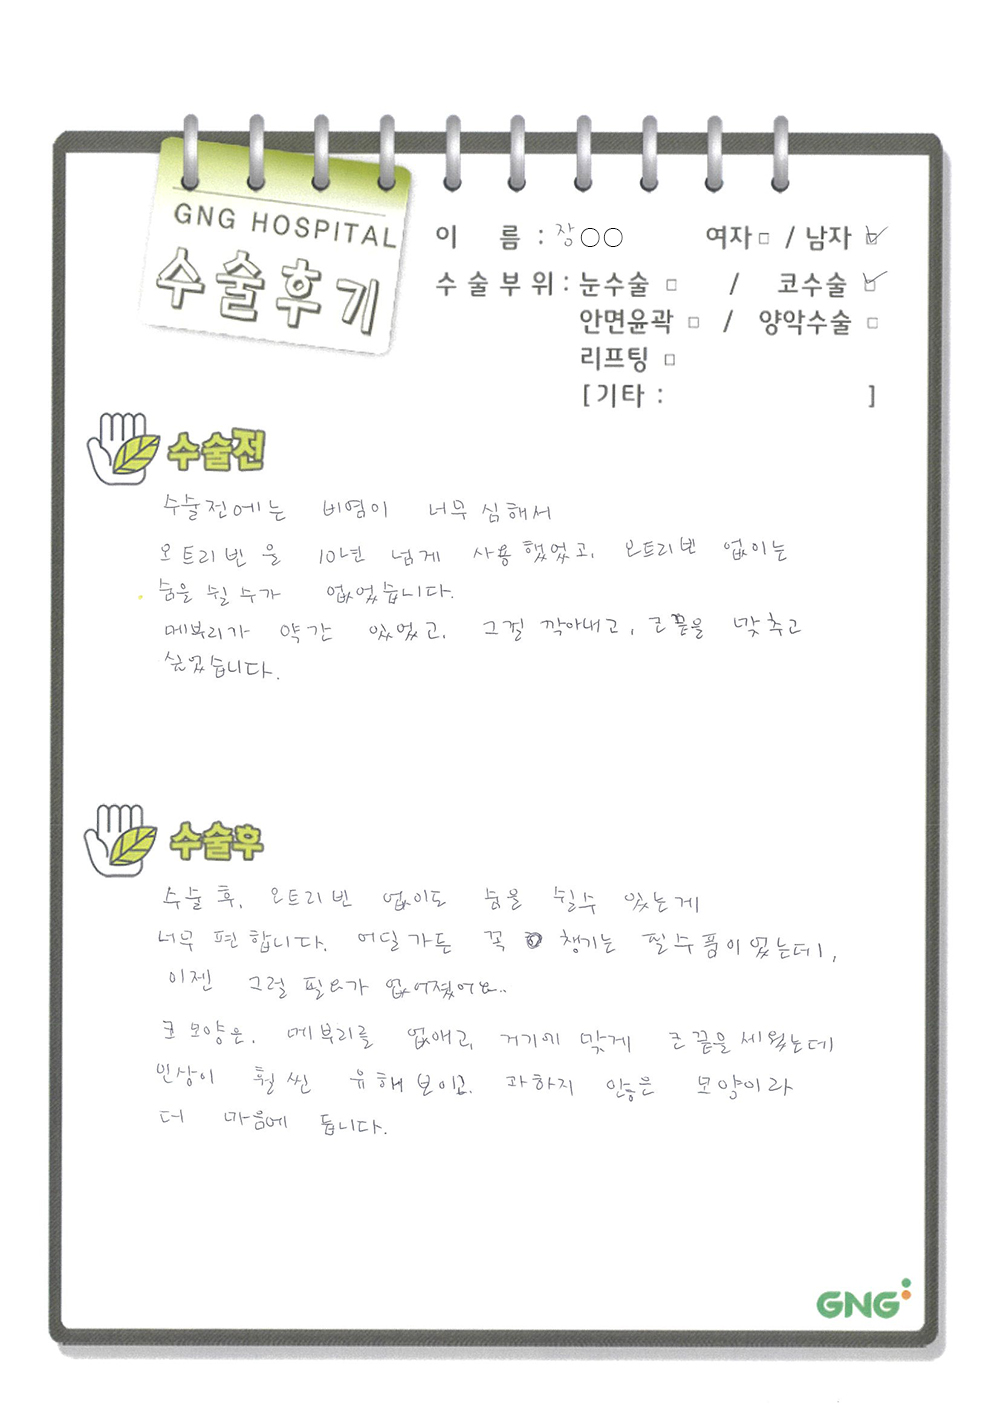 GNG HOSPITAL
수술후기
이 름 : 장○○ 여자□ / 남자☑
수술부위 : 눈수술 □ / 코수술 ☑
안면윤곽 □ / 양악수술 □
리프팅 □
[기타 : ]
수술전
수술전에는 비염이 너무 심해서
오트리빈을 10년 넘게 사용했었고, 오트리빈 없이는
숨을 쉴 수가 없었습니다.
메부리가 약간 있었고, 그걸 깍아내고, 코끝을 맞추고
싶었습니다.
수술후
수술 후, 오트리빈 없이도 숨을 쉴수 있는게
너무 편합니다. 어딜가든 꼭 챙기는 필수품이었는데,
이젠 그럴 필요가 없어졌어요..
코모양은, 메부리를 없애고, 거기에 맞게 코끝을 세웠는데
인상이 훨씬 유해보이고. 과하지 않은 모양이라
더 마음에 듭니다.
GNG